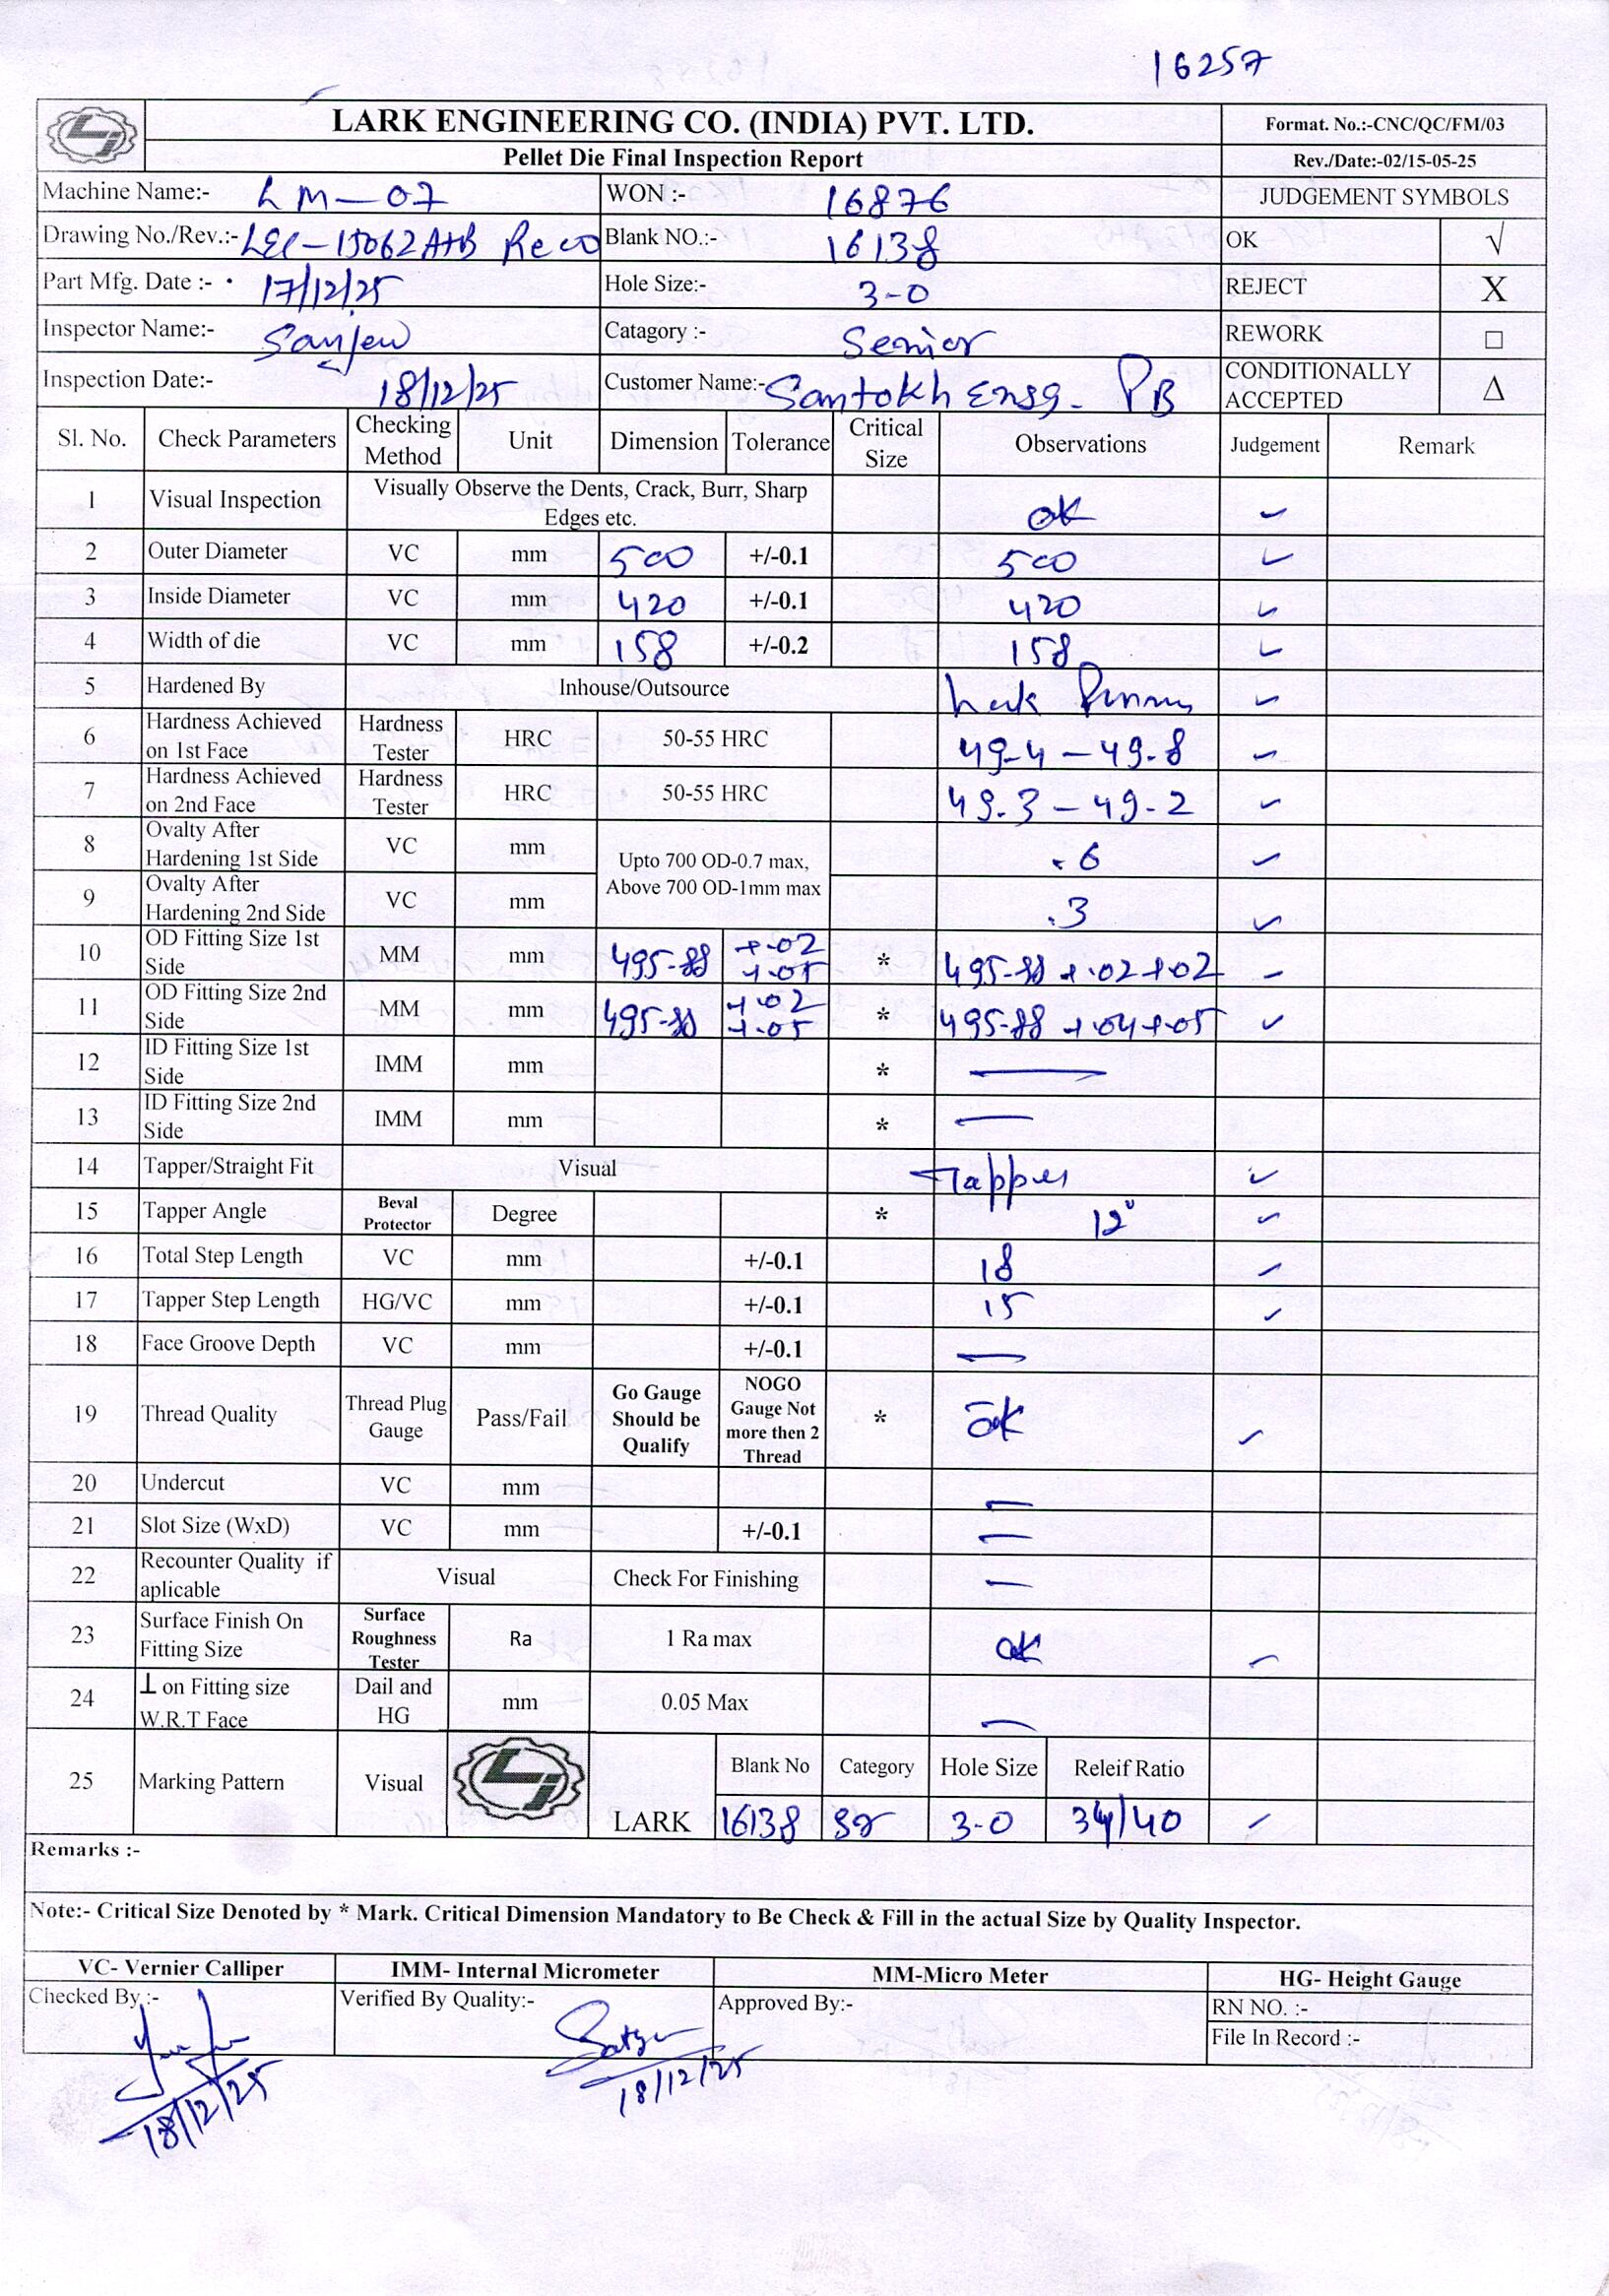 16257
LARK ENGINEERING CO. (INDIA) PVT. LTD.
Format. No.:-CNC/QC/FM/03
Pellet Die Final Inspection Report
Rev./Date:-02/15-05-25
Machine Name:- LM-07 WON :- 16876 JUDGEMENT SYMBOLS
Drawing No./Rev.:- LEC-15062A+B Blank NO.:- 16138 OK √
Part Mfg. Date :- 17/12/25 Hole Size:- 3-0 REJECT X
Inspector Name:- Sanjeev Catagory :- Senior REWORK □
Inspection Date:- 18/12/25 Customer Name:- Santokh Engg. PB CONDITIONALLY ACCEPTED Δ
Sl. No. Check Parameters Checking Method Unit Dimension Tolerance Critical Size Observations Judgement Remark
1 Visual Inspection Visually Observe the Dents, Crack, Burr, Sharp Edges etc. ok ✓
2 Outer Diameter VC mm 500 +/-0.1 500 ✓
3 Inside Diameter VC mm 420 +/-0.1 420 ✓
4 Width of die VC mm 158 +/-0.2 158 ✓
5 Hardened By Inhouse/Outsource Lark ✓
6 Hardness Achieved on 1st Face Hardness Tester HRC 50-55 HRC 49-4 - 49-8 ✓
7 Hardness Achieved on 2nd Face Hardness Tester HRC 50-55 HRC 49.3 - 49-2 ✓
8 Ovalty After Hardening 1st Side VC mm Upto 700 OD-0.7 max, Above 700 OD-1mm max .6 ✓
9 Ovalty After Hardening 2nd Side VC mm .3 ✓
10 OD Fitting Size 1st Side MM mm 495-88 +.02 +.05 * 495-88 +.02+.02 ✓
11 OD Fitting Size 2nd Side MM mm 495-88 +.02 +.05 * 495-88 +.04+.05 ✓
12 ID Fitting Size 1st Side IMM mm * —
13 ID Fitting Size 2nd Side IMM mm * —
14 Tapper/Straight Fit Visual Tapper ✓
15 Tapper Angle Beval Protector Degree * 12° ✓
16 Total Step Length VC mm +/-0.1 18 ✓
17 Tapper Step Length HG/VC mm +/-0.1 15 ✓
18 Face Groove Depth VC mm +/-0.1 —
19 Thread Quality Thread Plug Gauge Pass/Fail Go Gauge Should be Qualify NOGO Gauge Not more then 2 Thread * ok ✓
20 Undercut VC mm —
21 Slot Size (WxD) VC mm +/-0.1 —
22 Recounter Quality if aplicable Visual Check For Finishing —
23 Surface Finish On Fitting Size Surface Roughness Tester Ra 1 Ra max ok ✓
24 ⊥ on Fitting size W.R.T Face Dail and HG mm 0.05 Max —
25 Marking Pattern Visual LARK Blank No Category Hole Size Releif Ratio
16138 Sr 3-0 34/40 ✓
Remarks :-
Note:- Critical Size Denoted by * Mark. Critical Dimension Mandatory to Be Check & Fill in the actual Size by Quality Inspector.
VC- Vernier Calliper IMM- Internal Micrometer MM-Micro Meter HG- Height Gauge
Checked By :- Verified By Quality:- Approved By:- RN NO. :-
File In Record :-
18/12/25 18/12/25